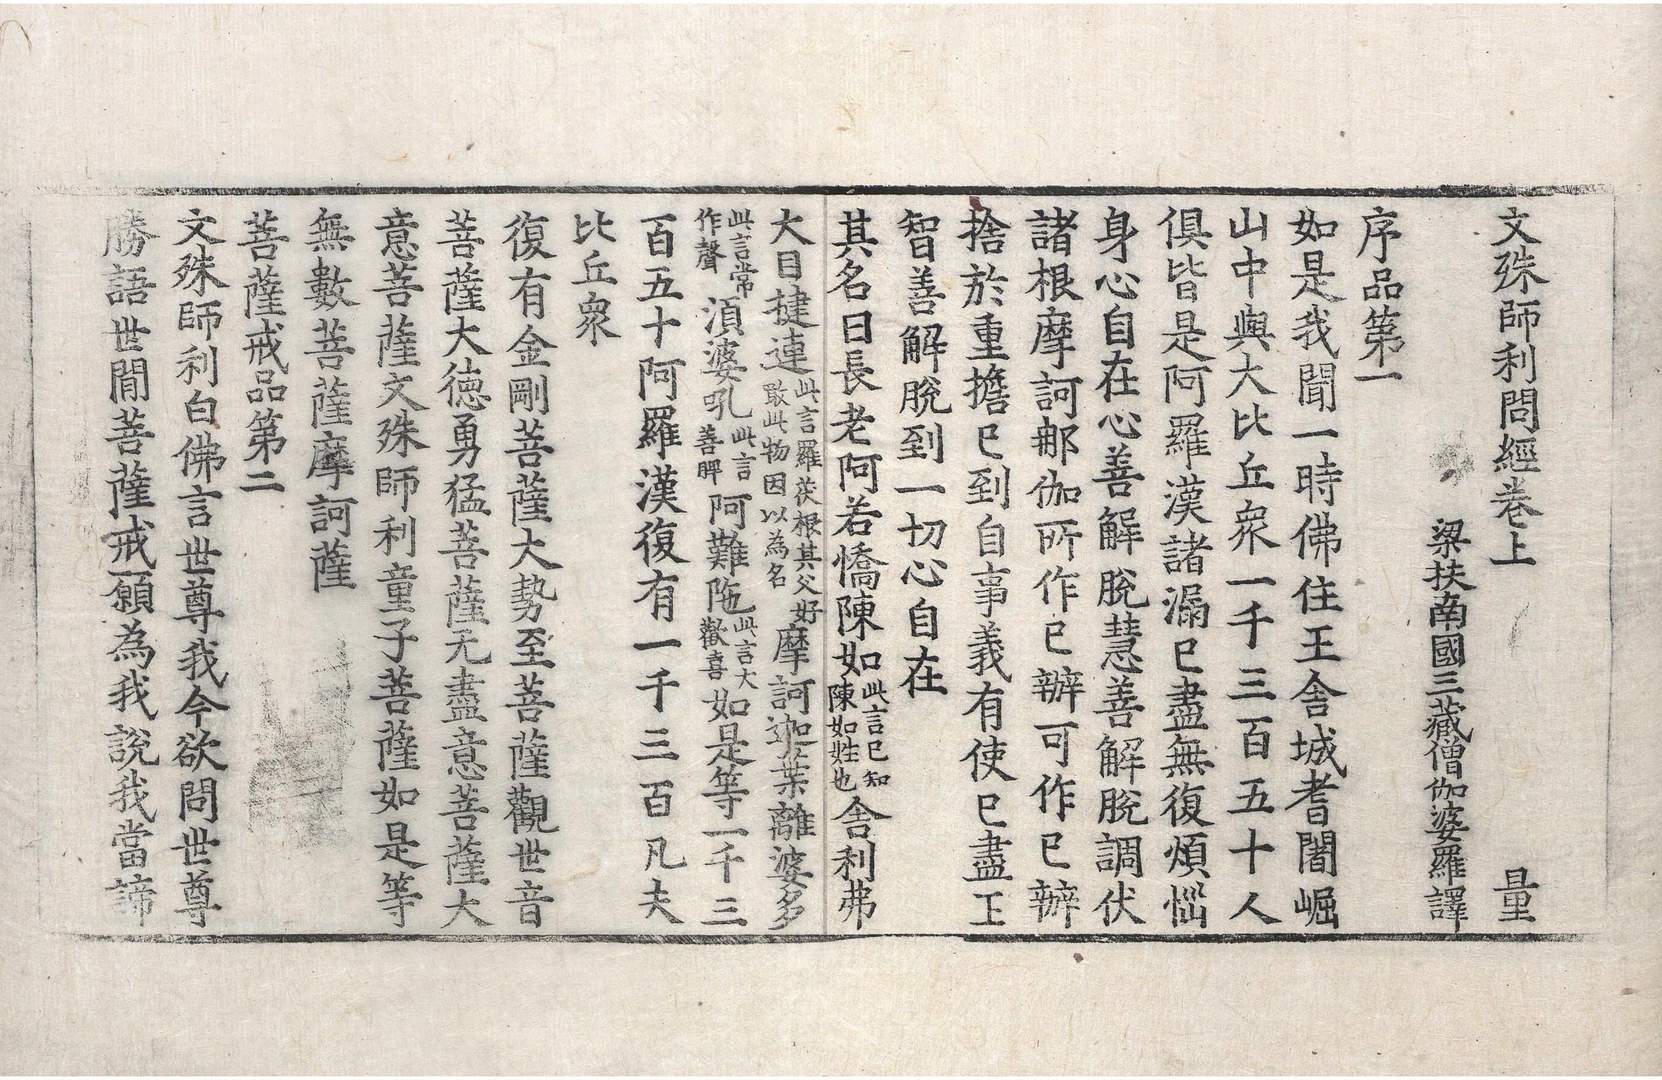 文殊師利問經卷上 量
梁扶南國三藏僧伽婆羅譯
序品第一
如是我聞一時佛住王舍城耆闍崛
山中與大比丘衆一千三百五十人
俱皆是阿羅漢諸漏已盡無復煩惱
身心自在心善解脫慧善解脫調伏
諸根摩訶那伽所作已辦可作已辦
捨於重擔已到自事義有使已盡正
智善解脫到一切心自在
其名曰長老阿若憍陳如此言已知陳如姓也舍利弗
大目揵連此言羅茯根其父好敢此物因以為名摩訶迦葉離婆多
此言常作聲湏婆吼此言善脾阿難陁此言大歡喜如是等一千三
百五十阿羅漢復有一千三百凡夫
比丘衆
復有金剛菩薩大勢至菩薩觀世音
菩薩大德勇猛菩薩无盡意菩薩大
意菩薩文殊師利童子菩薩如是等
無數菩薩摩訶薩
菩薩戒品第二
文殊師利白佛言世尊我今欲問世尊
勝語世間菩薩戒願為我說我當諦